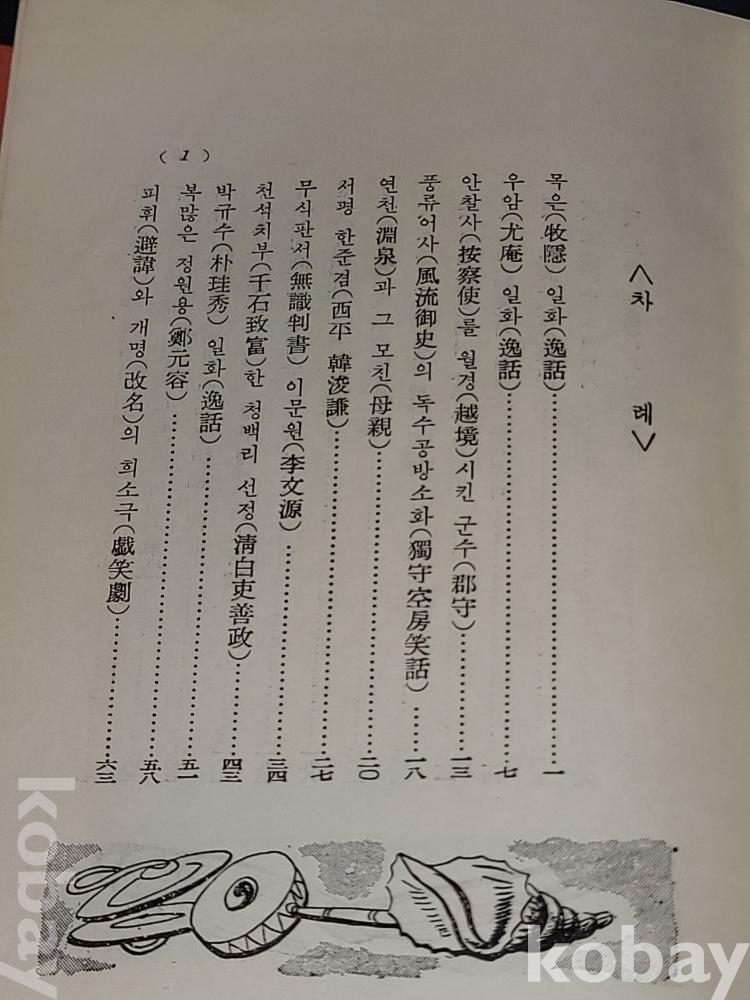 <차 례>
목은(牧隱) 일화(逸話)……………………一
우암(尤庵) 일화(逸話)……………………七
안찰사(按察使)를 월경(越境)시킨 군수(郡守)…………一三
풍류어사(風流御史)의 독수공방소화(獨守空房笑話)……一八
연천(淵泉)과 그 모친(母親)……………………二〇
서평 한준겸(西平 韓浚謙)……………………二七
무식판서(無識判書) 이문원(李文源)……………三四
천석치부(千石致富)한 청백리 선정(淸白吏善政)………四三
박규수(朴珪秀) 일화(逸話)……………………五一
복많은 정원용(鄭元容)……………………五八
피휘(避諱)와 개명(改名)의 희소극(戱笑劇)…………六三
(1)
kobay
kobay